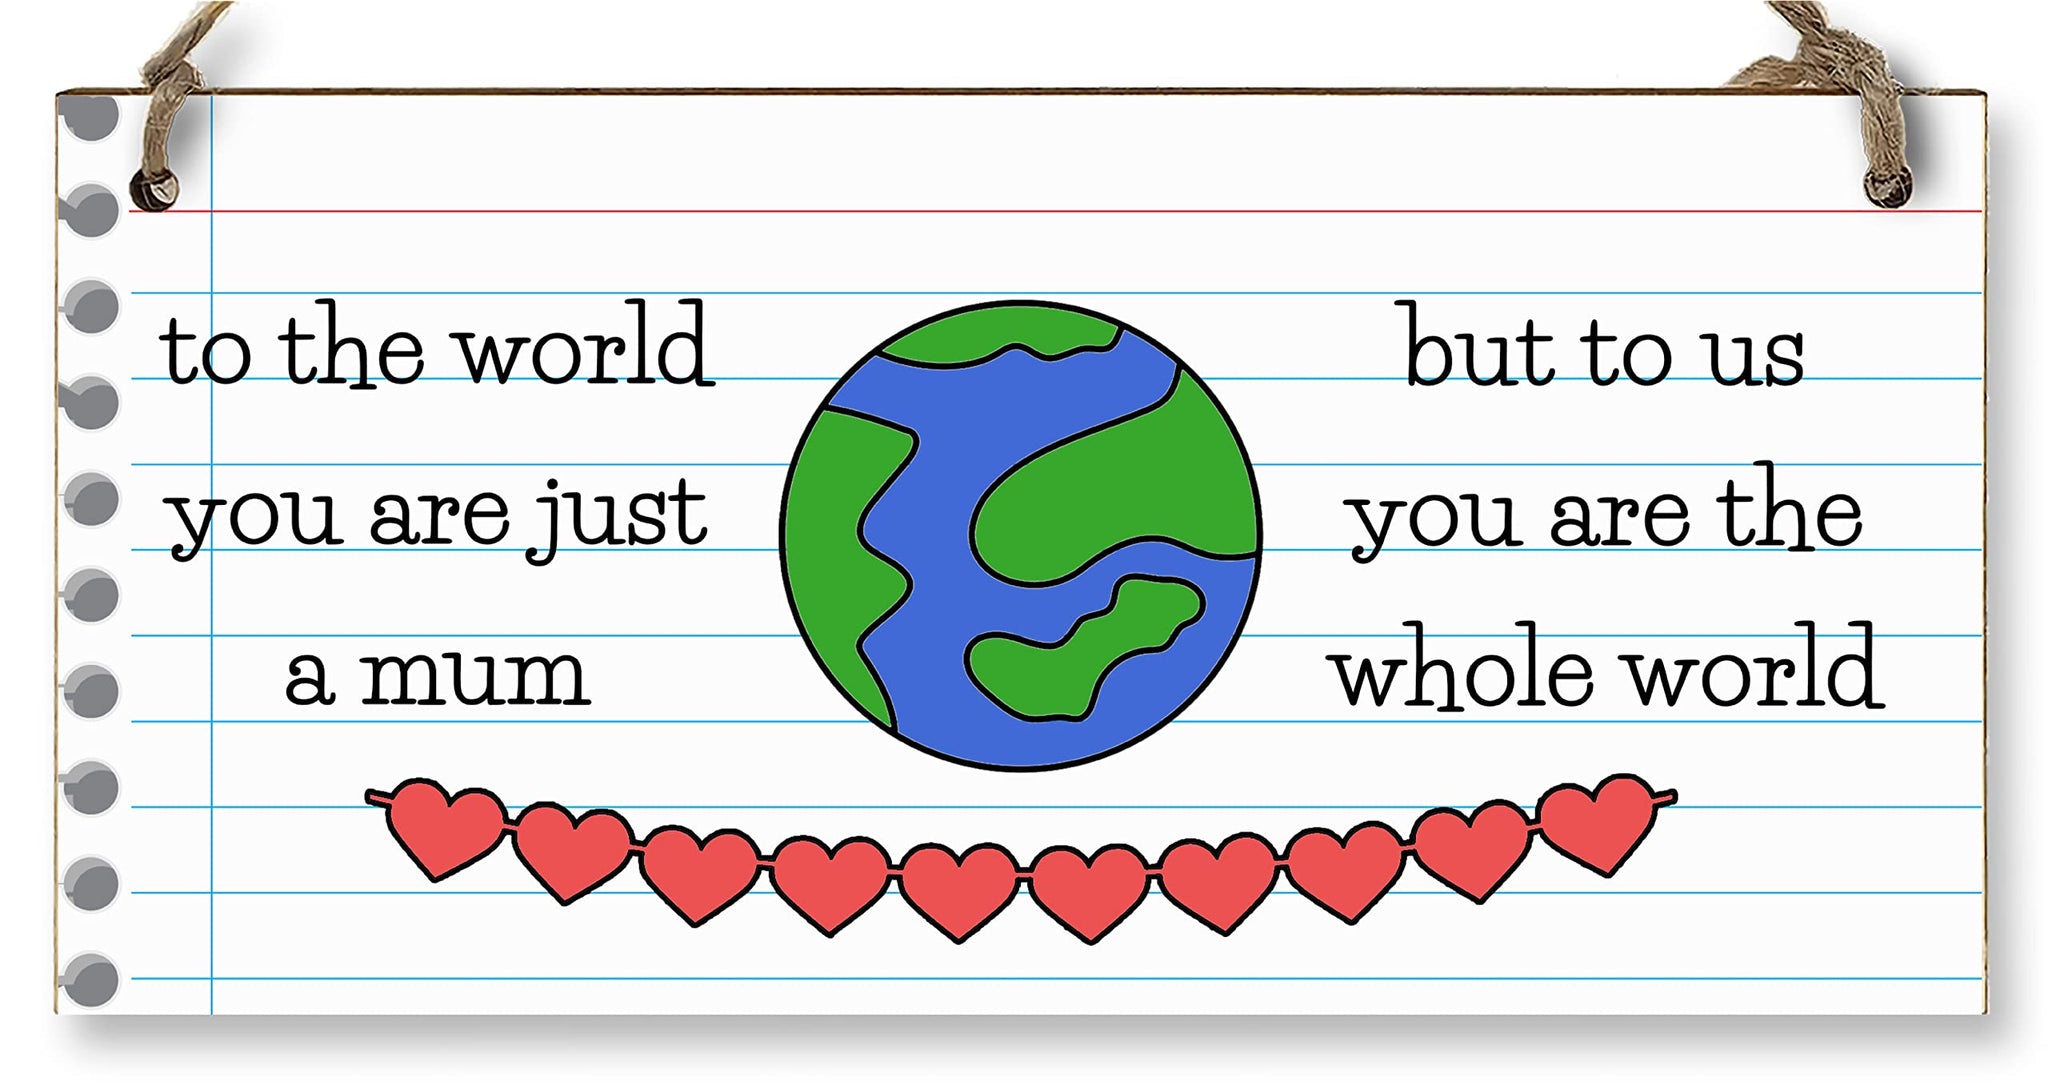 to the world
you are just
a mum
but to us
you are the
whole world